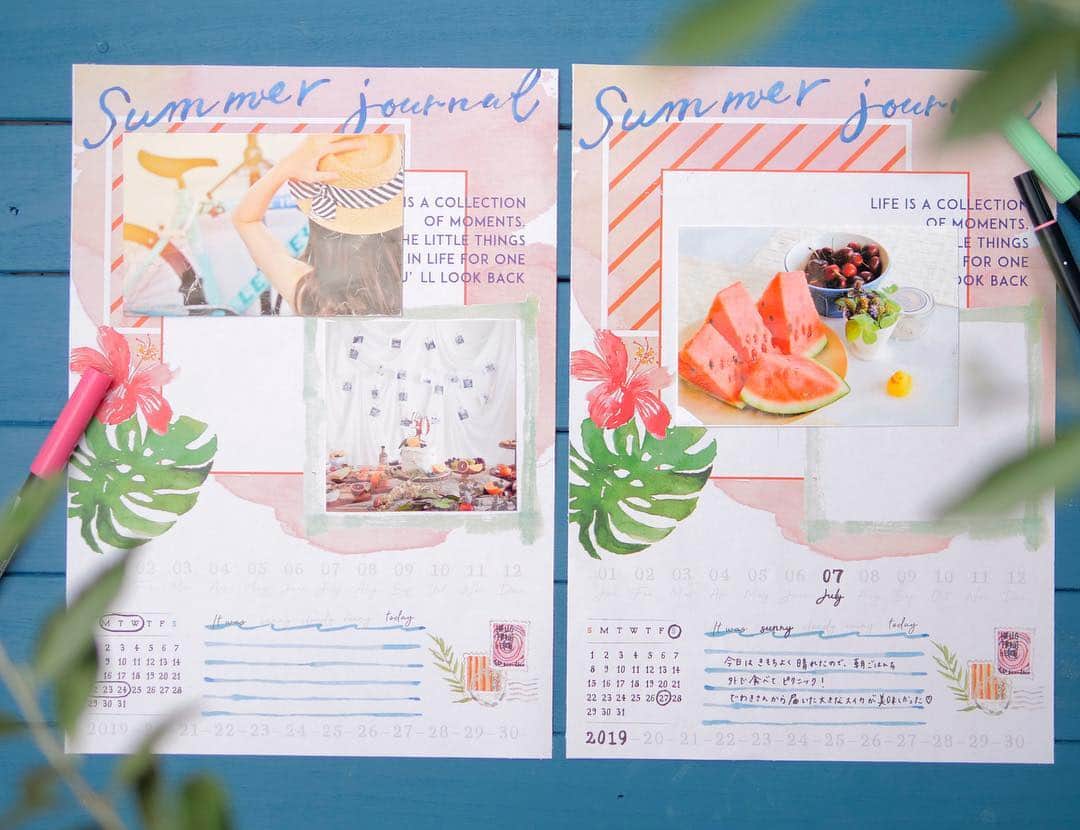 Summer journal
IS A COLLECTION
OF MOMENTS.
HE LITTLE THINGS
IN LIFE FOR ONE
U' LL LOOK BACK
02 03 04 05 06 07 08 09 10 11 12
M T W T F S
2 3 4 5 6 7
9 10 11 12 13 14
16 17 18 19 20 21
23 24 25 26 27 28
29 30 31
It was cloudy rainy today
2019-20-21-22-23-24-25-26-27-28-29-30
Summer jour
LIFE IS A COLLECTION
OF MOMENTS.
LE THINGS
FOR ONE
OOK BACK
01 02 03 04 05 06 07 08 09 10 11 12
Jan Feb Mar Apr May June July Aug Sep Oct Nov Dec
S M T W T F S
1 2 3 4 5 6 7
8 9 10 11 12 13 14
15 16 17 18 19 20 21
22 23 24 25 26 27 28
29 30 31
It was sunny cloudy rainy today
今日はきもちよく晴れたので、朝ごはんを
外で食べてピクニック!
でわきさんから届いた大きなスイカが美味しかった♡
2019-20-21-22-23-24-25-26-27-28-29-30